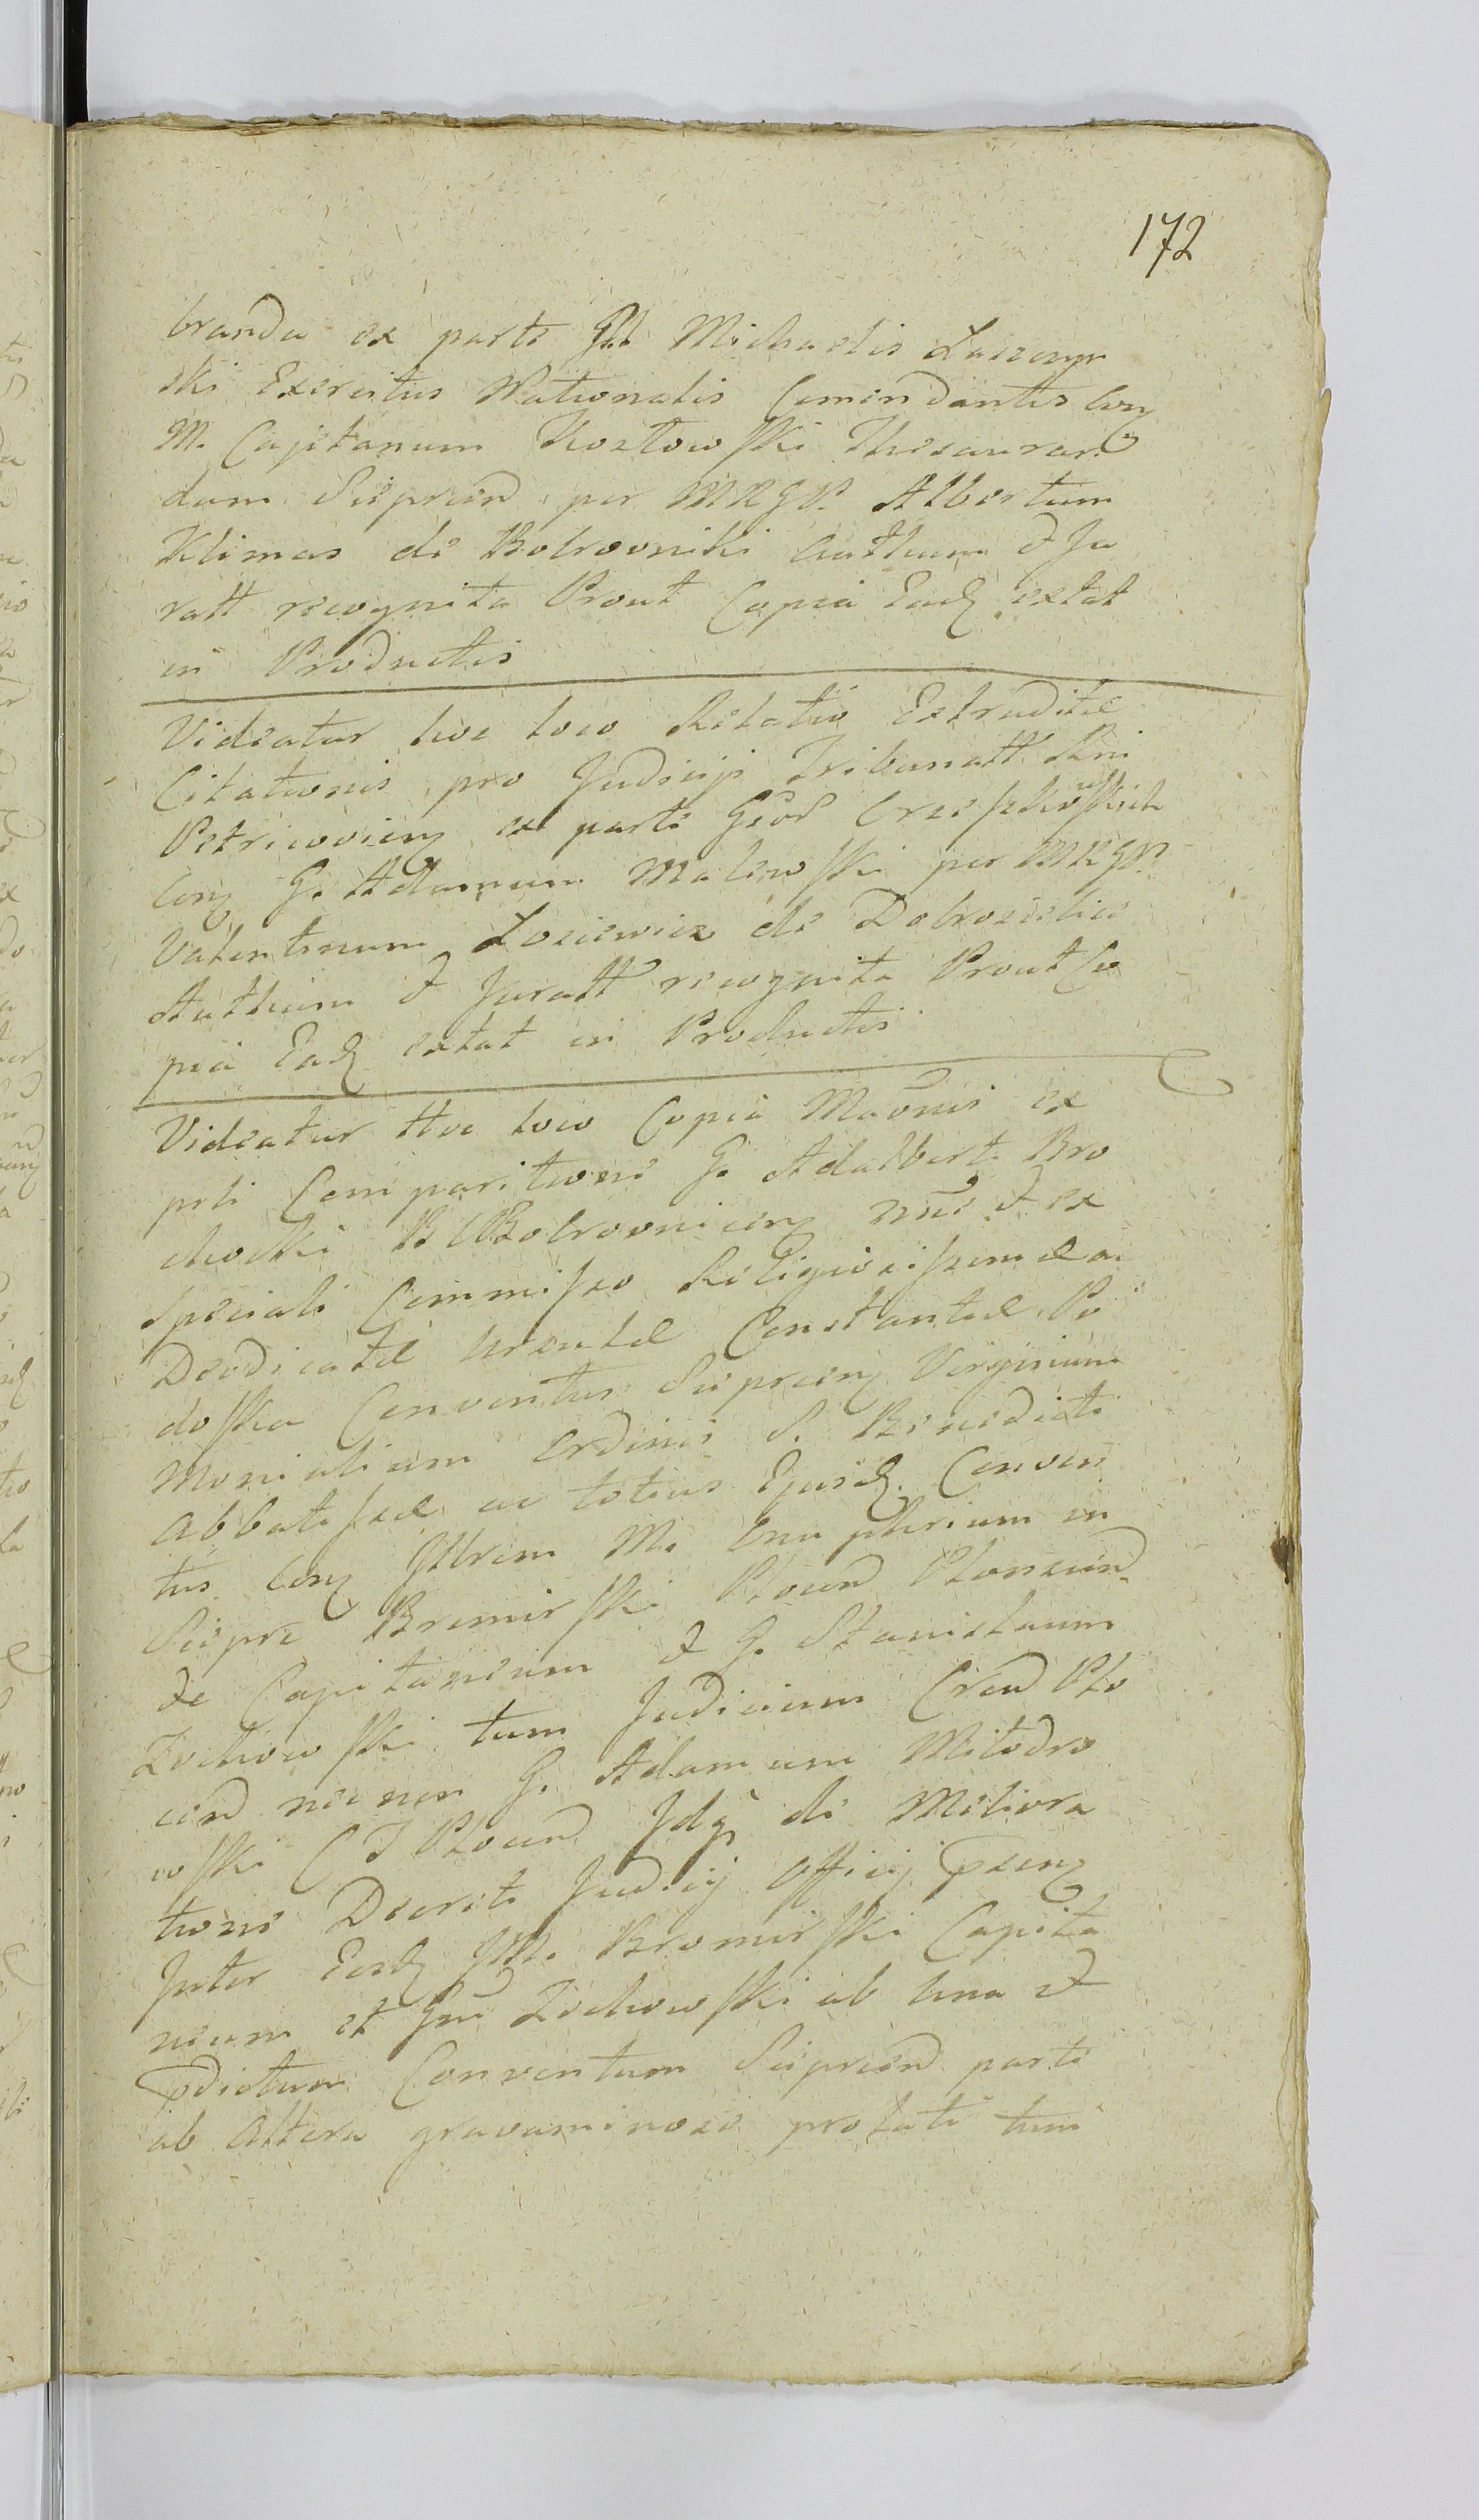 172
branda ex parte Gsi Michaelis Laszczyn
ski Exercitus Nationalis Comendantis Con
M. Cajetanum Kozłowski Thesaurari
dam Sieprcen per MRGP. Albertum
Klimas de Bobrowniki Authum et Ju
ratt recognita Prout Copia Eadz extat
in Productis
Videatur hoc loco Relatio Extraditae
Citationis pro Judicijs Tribunatt Rni
Petricovien ex parte Gsor Orzeszkowskich
Con G. Adamum Malewski per MRGP.
Valentinum Łosiewicz de Dobrosielice
Authum et Juratt recognita Prout Co
pia Eadz extat in Productis
Videatur Hoc loco Copia Maonis ex
prli Comparitione G. Adalberti Bro
chocki B Bobrownicen nne et ex
Speciali Commisso Religiosissimae ac
Deodicatae Constantiae Po
doska Conventus Sieprcen Virginium
Monialium Ordinis S. Benedicti
Abbatissae ac totius Ejusdz Conven
tus Con Illrem M. Onuphrium in
Sieprc Bromirski Plocen Plonscen
de Capitaneum et G. Stanislaum
Zochowski tum Judicium Cren Plo
cen nec non G. Adamum Milodro
wski C T Plocen Idq de Meliora
tione Decreti Judicij Officij psen
Inter Eosdz IM. Bromirski Capita
neum et Gm Zochowski ab Una et
pdictum Conventum Sieprcen parte
ab Altera gravaminose prolati tum